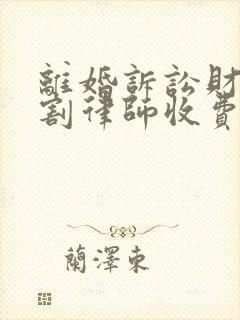 離婚訴訟財
割律師收費
蘭澤東